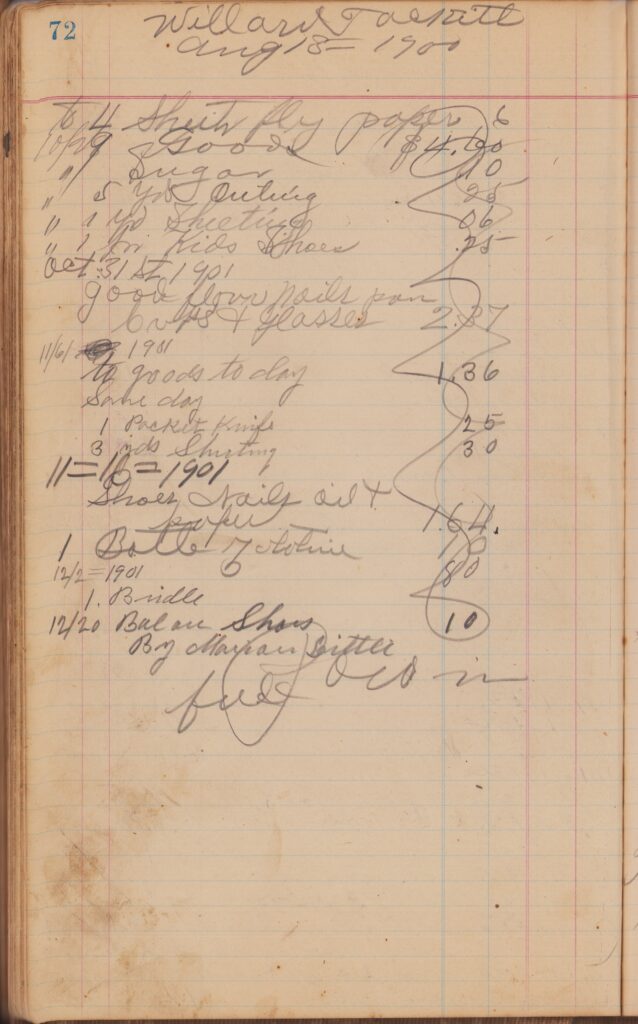 72
Willard Tackett
Aug 13 = 1900
to 4 Sheets fly paper 6
9 Goods $4.00
" Sugar 10
" 5 yds Outing 25
" 1 yd Sheeting 06
" 1 pr Kids Shoes .75
Oct 31st 1901
good flour Nails pan
Cups & glasses 2.37
11/6/ 1901
to goods to day 1.36
Same day
1 Pocket Knife 25
3 yds Shirting 30
11=16=1901
Shoes Nails oil &
paper 1.64.
1 Bottle 10
12/2=1901 80
1. Bridle
12/20 Balan Shoes 10
By Marion
full